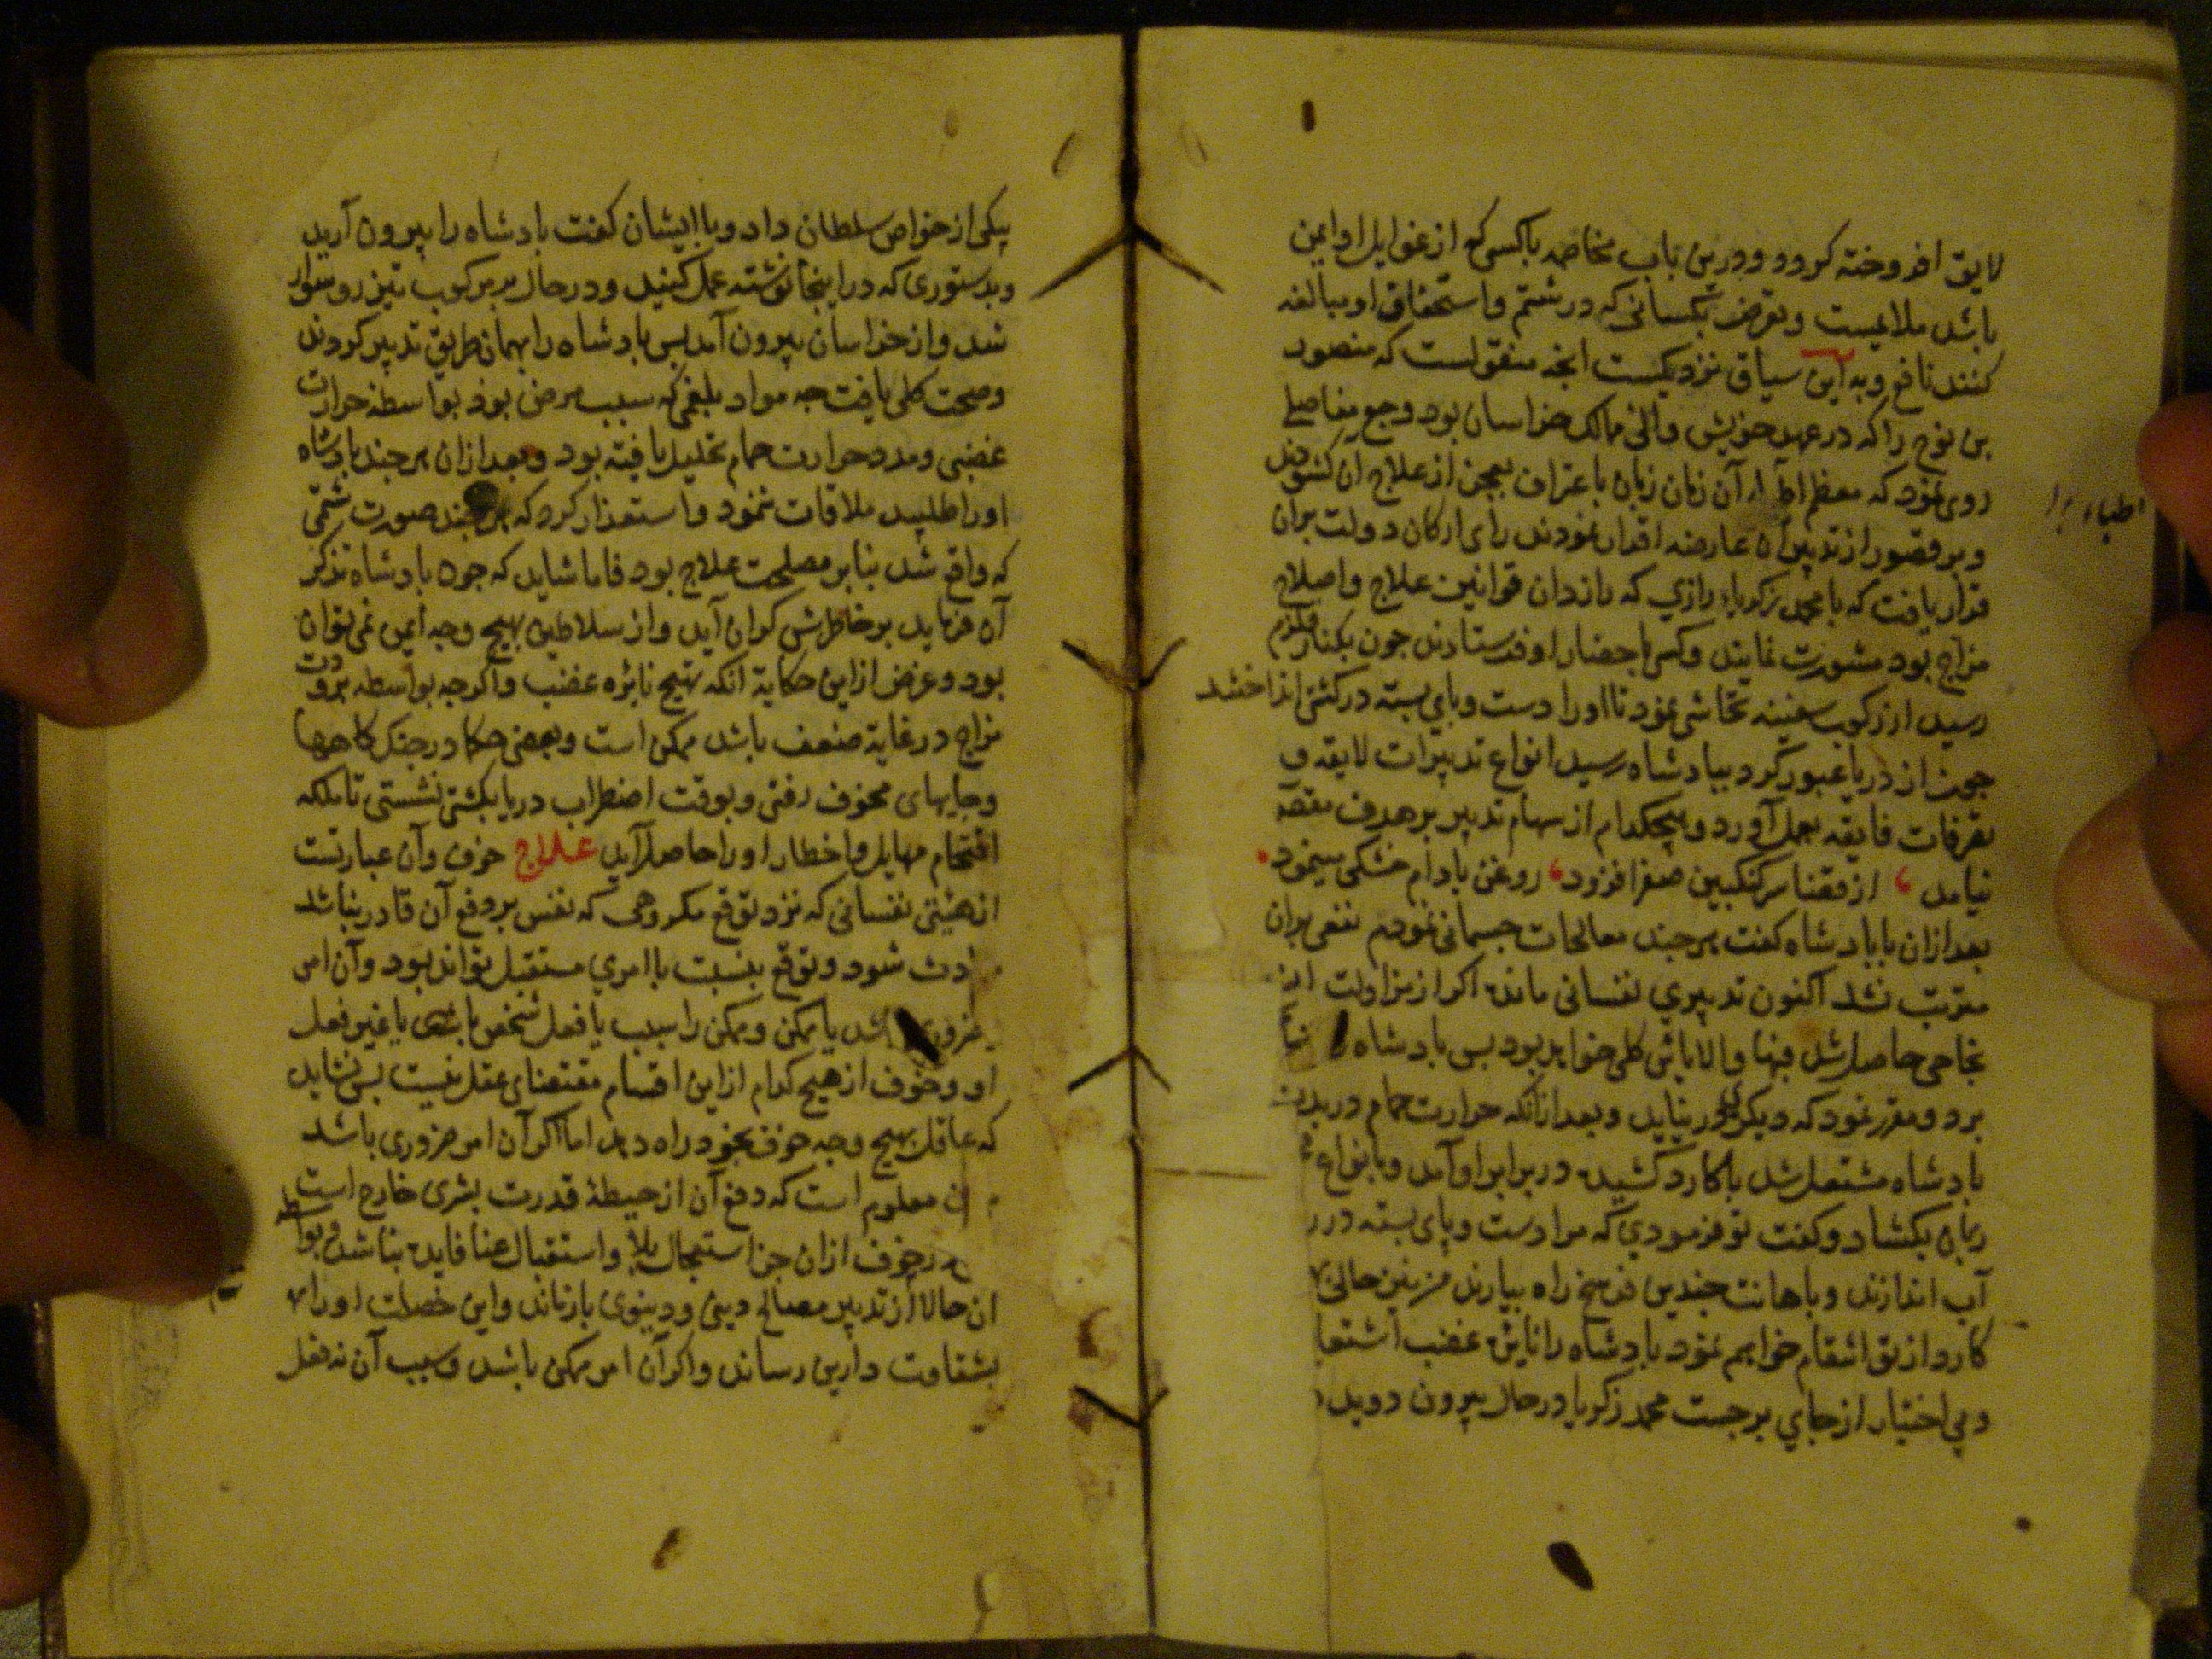 لایق افروخته کردد ودرین باب مخاصمه باکسی که از غوایل او ایمن
باشد ملایمست وتعرض بکسانی که در شتم واستخفاف او مبالغه
کنند نافع وبه این سیاق نزدیکست انجه منقولست که منصور
بن نوح را که در عهد خویش والی ممالک خراسان بود وجع مفاصلی
روی نمود که معظم اطباء آن زمان زبان باعتراف بعجز از علاج ان کشودند
اطباء
وبر قصور از تدبیر آن عارضه اقدام نمودند رای ارکان دولت بران
قرار یافت که با محمد زکریاء رازی که رازدان قوانین علاج واصلاح
مزاج بود مشورت نمایند وکسی باحضار او فرستادند جون بکنار قلزم
رسید از رکوب سفینه تحاشی نمود تا اورا دست وپای بسته در کشتی انداختند
جون از دریا عبور کرد بپادشاه رسید انواع تدبیرات لایقه و
تصرفات فایقه بعمل آورد وهیچکدام از سهام تدبیر بر هدف مقصد
نیامد از قضا سرکنکبین صفرا فزود روغن بادام خشکی مینمود
بعد ازان با پادشاه کفت هر جند معالجات جسمانی نمودم نفعی بران
مترتب نشد اکنون تدبیری نفسانی مانده اکر از مزاولت ان
نجاحی حاصل شد فبها والا یاس کلی خواهد بود بس بادشاه را
برد ومقرر نمود که دیکری در نیاید وبعد ازانکه حرارت حمام در بدن
بادشاه مشتعل شد با کارد کشیده در برابر او آمد وبانواع
زبان بکشاد وکفت تو فرمودی که مرا دست وپای بسته در
آب اندازند وباهانت جندین فرسخ راه بیارند من نیز حالی
کارد از تو انتقام خواهم نمود بادشاه را نایره غضب اشتعا
وبی اختیار از جای برجست محمد زکریا در حال بیرون دوید
بیکی از خواص سلطان داد وبا ایشان کفت بادشاه را بیرون آرید
وبدستوری که در اینجا نوشته عمل کنید ودر حال بر مرکوب تیز رو سوار
شد واز خراسان بیرون آمد بس بادشاه را بهمان طریق تدبیر کردند
وصحت کلی یافت جه مواد بلغمی که سبب مرض بود بواسطه حرارت
غضبی ومدد حرارت حمام تحلیل یافته بود وبعد ازان هر جند بادشاه
اورا طلبید ملاقات ننمود واستعذار کرد که هر جند صورت شتمی
که واقع شد بنابر مصلحت علاج بود فاما شاید که جون بادشاه تذکر
آن فرماید بر خاطرش کران آید واز سلاطین بهیج وجه ایمن نمی توان
بود وغرض از این حکایة انکه تهیج نایره غضب واکرجه بواسطه برودت
مزاج در غایة ضعف باشد ممکن است وبعضی حکما در جنک کاهها
وجایهای مخوف رفتی وبوقت اضطراب دریا بکشتی نشستی تا ملکه
اقتحام مهایل واخطار اورا حاصل آید علاج خوف وآن عبارتست
از هیئتی نفسانی که نزد توقع مکروهی که نفس بر دفع آن قادر نباشد
ادث شود وتوقع بنسبت با امری مستقبل تواند بود وآن امر
ضروری باشد یا ممکن وممکن را سبب یا فعل شخص باشد یا غیر فعل
او وخوف از هیج کدام از این اقسام مقتضای عقل نیست بس نشاید
که عاقل بهیج وجه خوف بخود راه دهد اما اکر آن امر ضروری باشد
ن معلوم است که دفع آن از حیطهٔ قدرت بشری خارج است
در خوف ازان جز استعجال بلا واستقبال عنا فایده نباشد وبواسطه
ان حالا از تدبیر مصالح دینی ودنیوی بازماند واین خصلت اورا
بشقاوت دارین رساند واکر آن امر ممکن باشد وسبب آن نه فعل